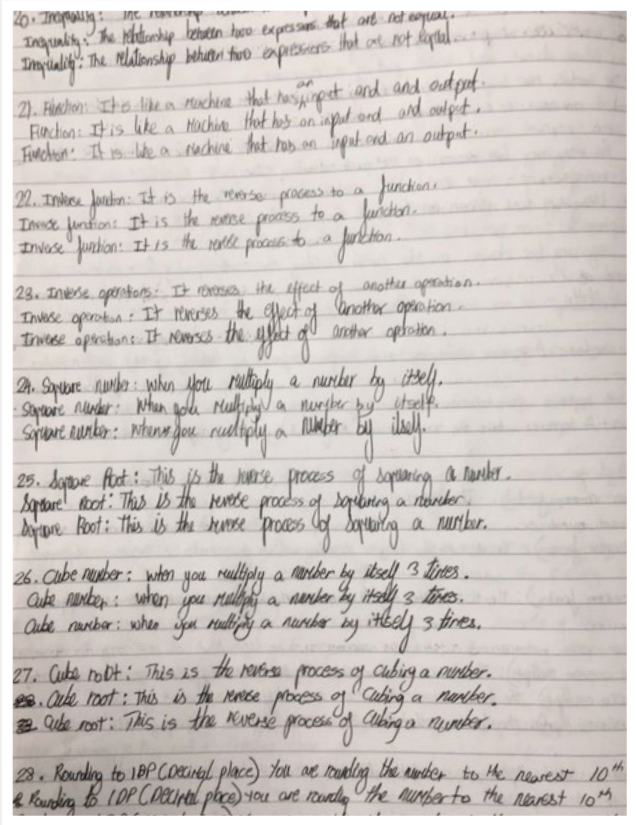 20. Inequality: The relationship
Inequality: The relationship between two expressions that are not equal.
Inequality: The relationship between two expressions that are not equal.
21. Function: It is like a machine that has an input and and output.
Function: It is like a machine that has an input and and output.
Function: It is like a machine that has an input and an output.
22. Inverse function: It is the reverse process to a function.
Inverse function: It is the reverse process to a function.
Inverse function: It is the reverse process to a function.
23. Inverse operations: It reverses the effect of another operation.
Inverse operation: It reverses the effect of another operation.
Inverse operations: It reverses the effect of another operation.
24. Square number: when you multiply a number by itself.
Square number: When you multiply a number by itself.
Square number: when you multiply a number by itself.
25. Square Root: This is the reverse process of squaring a number.
Square Root: This is the reverse process of squaring a number.
Square Root: This is the reverse process of squaring a number.
26. Cube number: when you multiply a number by itself 3 times.
Cube number: when you multiply a number by itself 3 times.
Cube number: when you multiply a number by itself 3 times.
27. Cube root: This is the reverse process of cubing a number.
Cube root: This is the reverse process of cubing a number.
Cube root: This is the reverse process of cubing a number.
28. Rounding to 1DP (Decimal place) You are rounding the number to the nearest 10th
Rounding to 1DP (Decimal place) you are rounding the number to the nearest 10th